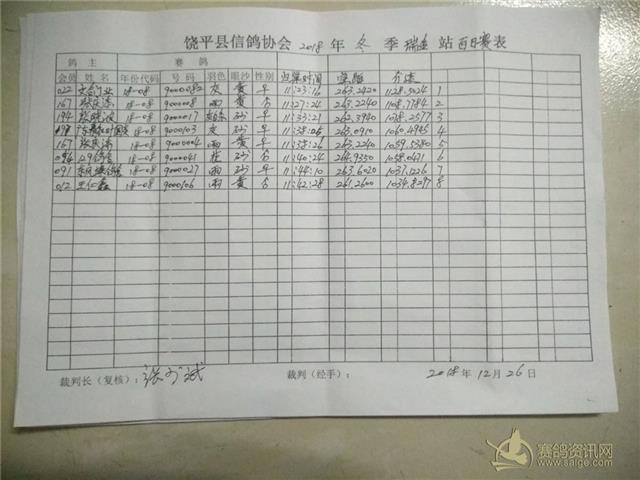 饶平县信鸽协会 2018 年 冬 季 瑞金 站 百日赛表
鸽 主 赛 鸽
会员 姓名 年份代码 号码 羽色 眼沙 性别 归巢时间 空距 分速
022 18-08 9000082 灰 黄 11:23:16 263.2420 1128.5024 1
167 18-08 雨 黄 11:27:24 263.2240 1108.7784 2
194 18-08 沙 11:33:21 262.3940 1038.2577 3
18-08 9000103 灰 沙 11:38:06 263.0910 1060.4945 4
167 18-08 雨 沙 11:38:26 263.2240 1059.5380 5
18-08 9000041 沙 11:40:24 264.9350 1058.0431 6
091 18-08 9000027 雨 沙 11:44:10 263.6020 1037.1226 7
012 18-08 9000106 雨 黄 11:42:28 261.2600 1034.8297 8
裁判长（复核）： 裁判（经手）： 2018 年 12 月 26 日
赛鸽资讯网
www.saige.com